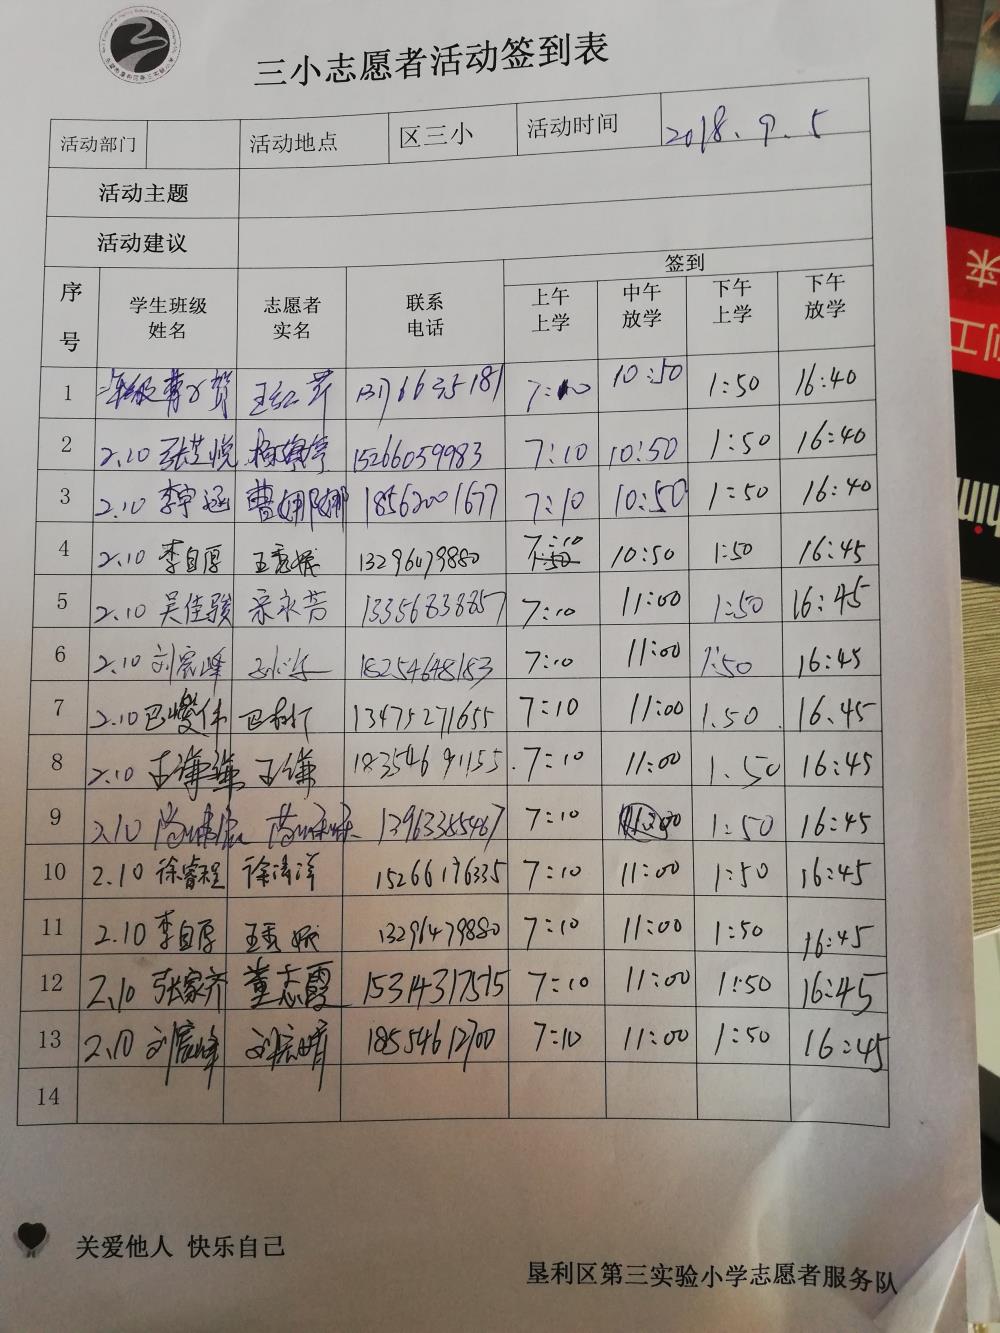 三小志愿者活动签到表
活动部门 活动地点 区三小 活动时间 2018.9.5
活动主题
活动建议
序号 学生班级姓名 志愿者实名 联系电话 签到
上午上学 中午放学 下午上学 下午放学
1 10:50 1:50 16:40
2 2.10 张芝悦 15266059983 7:10 10:50 1:50 16:40
3 2.10 李宇涵 曹娜娜 18562001677 7:10 10:50 1:50 16:40
4 2.10 李自厚 13296479880 7:10 10:50 1:50 16:45
5 2.10 吴佳骏 宋永芳 13356838857 7:10 11:00 1:50 16:45
6 2.10 刘宸峰 18254648183 7:10 11:00 1:50 16:45
7 2.10 13475271655 7:10 11:00 1.50 16.45
8 2.10 18354691155 7:10 11:00 1.50 16:45
9 2.10 7:10 1:50 16:45
10 2.10 徐睿程 徐涛洋 15266176335 7:10 11:00 1:50 16:45
11 2.10 李自厚 13296479880 7:10 11:00 1:50 16:45
12 2.10 张家齐 董志霞 15314317515 7:10 11:00 1:50 16:45
13 2.10 刘宸峰 18554612700 7:10 11:00 1:50 16:45
14
关爱他人 快乐自己
垦利区第三实验小学志愿者服务队
来